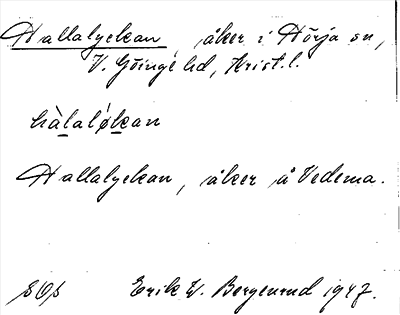 Hallalyckan, åker i Hörja sn,
V. Göinge hd, Krist. l.
hàlaløkan
Hallalyckan, åker å Vedema.
Erik W. Bergenrud 1947.